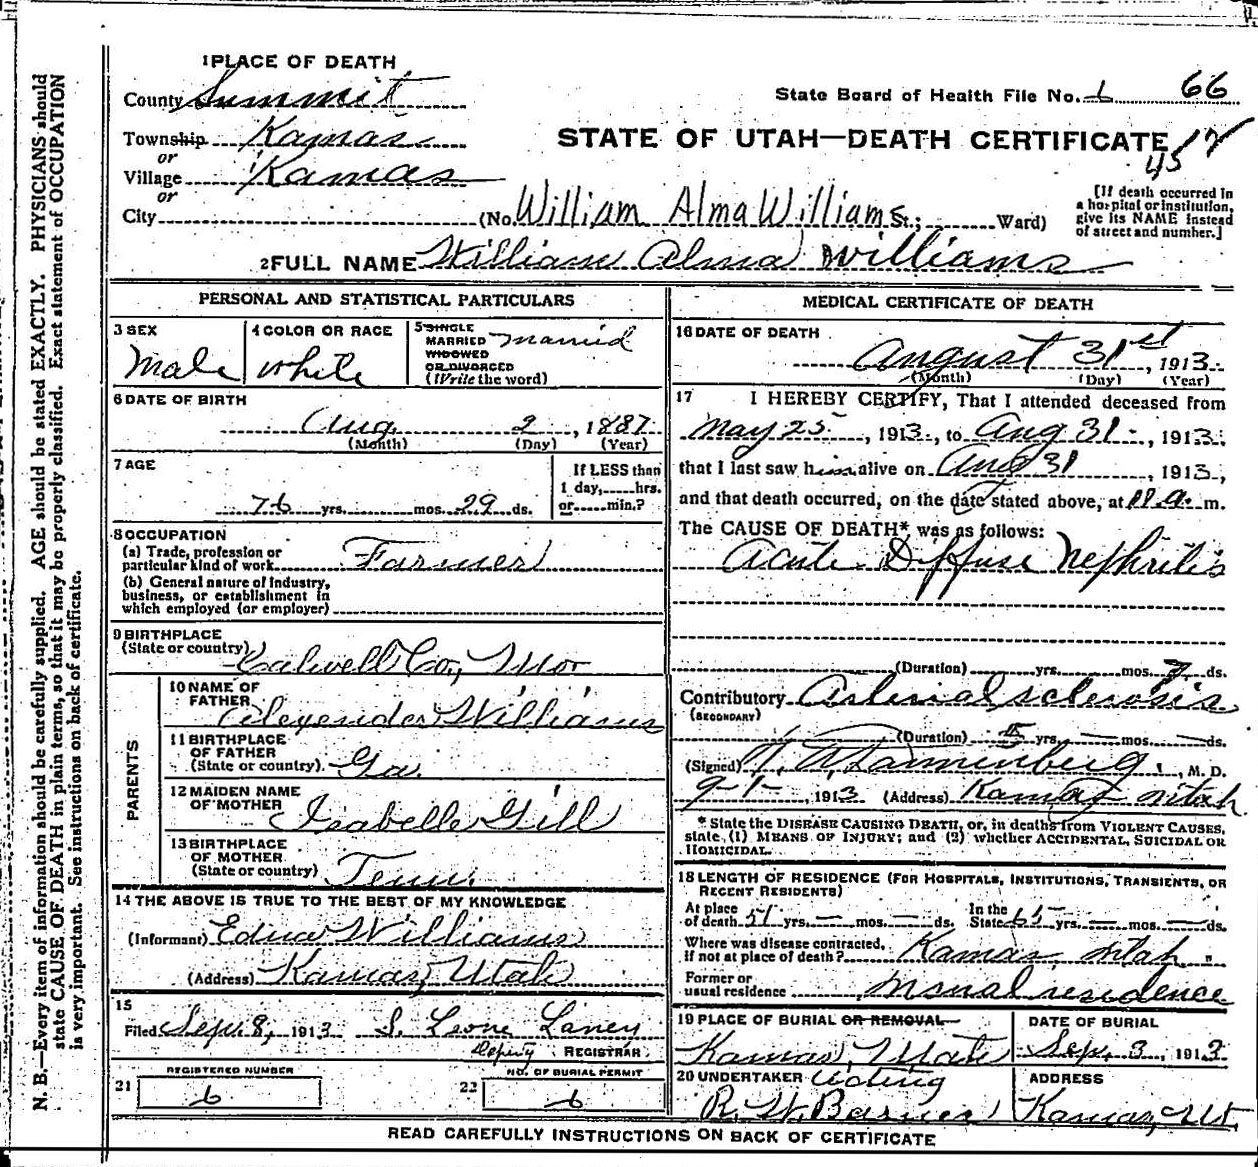 1 PLACE OF DEATH
County Summit
Township Kamas
or
Village Kamas
or
City (No. William Alma Williams St.; Ward)
State Board of Health File No. 6 66
STATE OF UTAH—DEATH CERTIFICATE
45
17
[If death occurred in
a hospital or institution,
give its NAME instead
of street and number.]
2 FULL NAME William Alma Williams
PERSONAL AND STATISTICAL PARTICULARS
3 SEX
Male
4 COLOR OR RACE
white
5 SINGLE
MARRIED
WIDOWED
OR DIVORCED
(Write the word)
Married
6 DATE OF BIRTH
Aug. 2, 1887
(Month) (Day) (Year)
7 AGE
76 yrs. mos. 29 ds.
If LESS than
1 day, hrs.
or min.?
8 OCCUPATION
(a) Trade, profession or
particular kind of work Farmer
(b) General nature of industry,
business, or establishment in
which employed (or employer)
9 BIRTHPLACE
(State or country) Calwell Co., Mor
PARENTS
10 NAME OF
FATHER
Alexander Williams
11 BIRTHPLACE
OF FATHER
(State or country) Ga.
12 MAIDEN NAME
OF MOTHER
Isabelle Gill
13 BIRTHPLACE
OF MOTHER
(State or country) Tenn.
14 THE ABOVE IS TRUE TO THE BEST OF MY KNOWLEDGE
(Informant) Edna Williams
(Address) Kamas, Utah
15
Filed Sep. 8, 1913 S. Leone Laney
Deputy REGISTRAR
REGISTERED NUMBER
21 6
NO. OF BURIAL PERMIT
22 6
MEDICAL CERTIFICATE OF DEATH
16 DATE OF DEATH
August 31st, 1913
(Month) (Day) (Year)
17 I HEREBY CERTIFY, That I attended deceased from
May 25, 1913, to Aug 31, 1913,
that I last saw him alive on Aug 31, 1913,
and that death occurred, on the date stated above, at 11 a. m.
The CAUSE OF DEATH* was as follows:
Acute Diffuse Nephritis
(Duration) yrs. mos. 7 ds.
Contributory Arterial sclerosis
(SECONDARY)
(Duration) 5 yrs. — mos. — ds.
(Signed) Dannenberg, M. D.
9-1-, 1913 (Address) Kamas Utah.
* State the DISEASE CAUSING DEATH, or, in deaths from VIOLENT CAUSES,
state (1) MEANS OF INJURY; and (2) whether ACCIDENTAL, SUICIDAL OR
HOMICIDAL.
18 LENGTH OF RESIDENCE (FOR HOSPITALS, INSTITUTIONS, TRANSIENTS, OR
RECENT RESIDENTS)
At place
of death 51 yrs. — mos. — ds. In the
State 65 yrs. — mos. — ds.
Where was disease contracted,
if not at place of death? Kamas, Utah.
Former or
usual residence Usual residence
19 PLACE OF BURIAL OR REMOVAL
Kamas, Utah
DATE OF BURIAL
Sep. 3, 1913
20 UNDERTAKER Acting
R. W. Barnes
ADDRESS
Kamas, Ut.
READ CAREFULLY INSTRUCTIONS ON BACK OF CERTIFICATE
N. B.—Every item of information should be carefully supplied. AGE should be stated EXACTLY. PHYSICIANS should
state CAUSE OF DEATH in plain terms, so that it may be properly classified. Exact statement of OCCUPATION
is very important. See instructions on back of certificate.